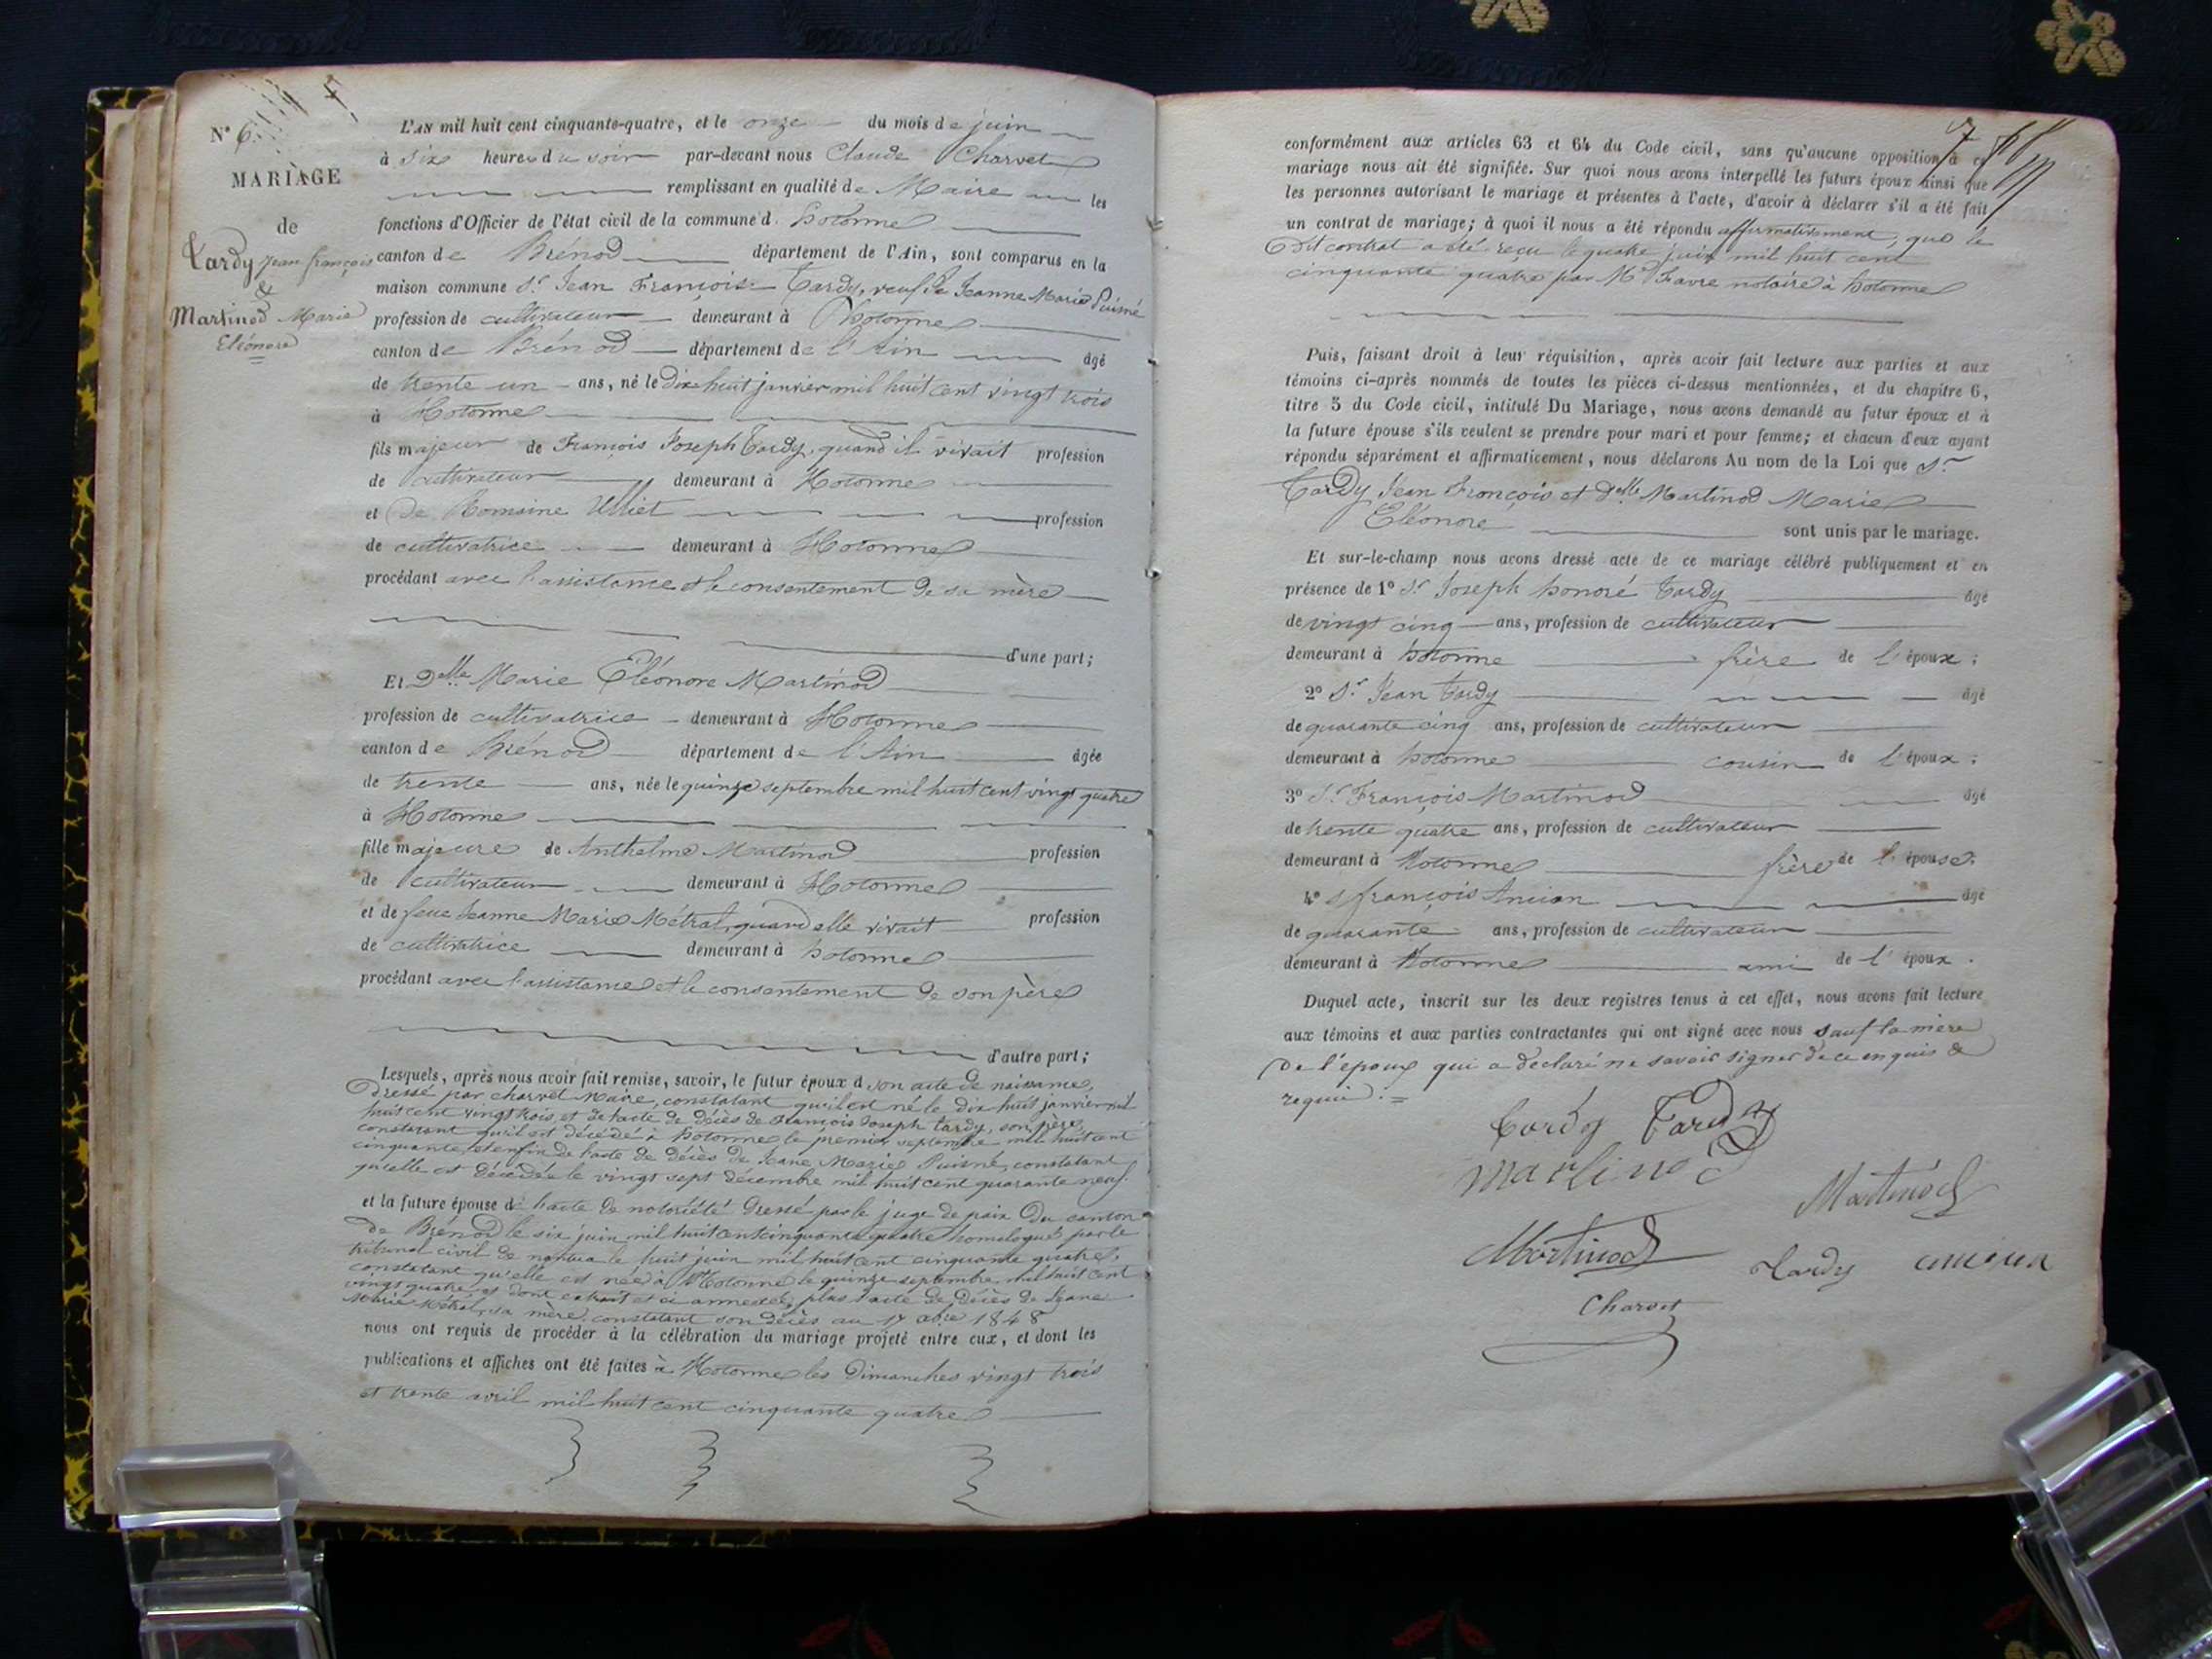 N° 6.
MARIAGE
de
Tardy Jean françois
&
Martinod Marie
Eléonore
L'AN mil huit cent cinquante-quatre, et le onze du mois de juin
à six heures du soir par-devant nous Claude Charvet
remplissant en qualité de Maire les
fonctions d'Officier de l'état civil de la commune d. hotonne
canton de Brénod département de l'Ain, sont comparus en la
maison commune Sr Jean François Tardy, veuf de Jeanne Marie Puisné
profession de cultivateur demeurant à hotonne
canton de Brénod département de l'Ain âgé
de trente un ans, né le dix huit janvier mil huit cent vingt trois
à Hotonne
fils majeur de François Joseph Tardy, quand il vivait profession
de cultivateur demeurant à Hotonne
et de Romaine Ulliet profession
de cultivatrice demeurant à Hotonne
procédant avec l'assistance et le consentement de sa mère
d'une part;
Et Delle Marie Eléonore Martinod
profession de cultivatrice demeurant à Hotonne
canton de Brénod département de l'Ain âgée
de trente ans, née le quinze septembre mil huit cent vingt quatre
à Hotonne
fille majeure de Anthelme Martinod profession
de cultivateur demeurant à Hotonne
et de feue Jeanne Marie Métral, quand elle vivait profession
de cultivatrice demeurant à hotonne
procédant avec l'assistance et le consentement de son père
d'autre part;
Lesquels, après nous avoir fait remise, savoir, le futur époux d son acte de naissance,
dressé par charvet Maire, constatant qu'il est né le dix huit janvier mil
huit cent vingt trois, et de l'acte de décès de François Joseph tardy, son père,
constatant qu'il est décédé à hotonne le premier septembre mil huit cent
cinquante, et enfin de l'acte de décès de Jeane Marie Puisné, constatant
qu'elle est décédée le vingt sept décembre mil huit cent quarante neuf.
et la future épouse d l'acte de notoriété dressé par le juge de paix du canton
de Brénod le six juin mil huit cent cinquante quatre homologué par le
tribunal civil de nantua le huit juin mil huit cent cinquante quatre,
constatant qu'elle est née à Hotonne le quinze septembre mil huit cent
vingt quatre, et dont extrait est ci annexé, plus l'acte de décès de Jeane
Marie Métral, sa mère, constatant son décès au 17 1848
nous ont requis de procéder à la célébration du mariage projeté entre eux, et dont les
publications et affiches ont été faites à Hotonne les Dimanches vingt trois
et trente avril mil huit cent cinquante quatre
7
conformément aux articles 63 et 64 du Code civil, sans qu'aucune opposition à ce
mariage nous ait été signifiée. Sur quoi nous avons interpellé les futurs époux ainsi que
les personnes autorisant le mariage et présentes à l'acte, d'avoir à déclarer s'il a été fait
un contrat de mariage; à quoi il nous a été répondu affirmativement, que le
dit contrat a été reçu le quatre juin mil huit cent
cinquante quatre par Me Favre notaire à hotonne
Puis, faisant droit à leur réquisition, après avoir fait lecture aux parties et aux
témoins ci-après nommés de toutes les pièces ci-dessus mentionnées, et du chapitre 6,
titre 5 du Code civil, intitulé Du Mariage, nous avons demandé au futur époux et à
la future épouse s'ils veulent se prendre pour mari et pour femme; et chacun d'eux ayant
répondu séparément et affirmativement, nous déclarons Au nom de la Loi que Sr
Tardy Jean François et Delle Martinod Marie
Eléonore sont unis par le mariage.
Et sur-le-champ nous avons dressé acte de ce mariage célébré publiquement et en
présence de 1° Sr Joseph honoré Tardy âgé
de vingt cinq ans, profession de cultivateur
demeurant à hotonne frère de l'époux;
2° Sr Jean Tardy âgé
de quarante cinq ans, profession de cultivateur
demeurant à hotonne cousin de l'époux;
3° Sr François Martinod âgé
de trente quatre ans, profession de cultivateur
demeurant à Hotonne frère de l'épouse;
4° S françois Ancian âgé
de quarante ans, profession de cultivateur
demeurant à Hotonne ami de l'époux.
Duquel acte, inscrit sur les deux registres tenus à cet effet, nous avons fait lecture
aux témoins et aux parties contractantes qui ont signé avec nous sauf la mère
de l'époux qui a déclaré ne savoir signer de ce enquis &
requis.
Tardy Tardy
Martinod
Martinod
Martinod
Tardy ancian
Charvet